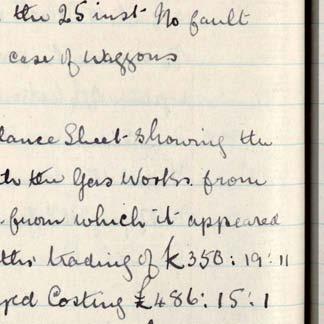 the 25 inst No fault
case of Waggons
lance Sheet showing the
the Gas Works from
from which it appeared
this trading of £350: 19: 11
Costing £486: 15: 1